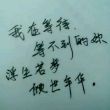 我在等待
等不到的你
浮生若梦
倾世年华.